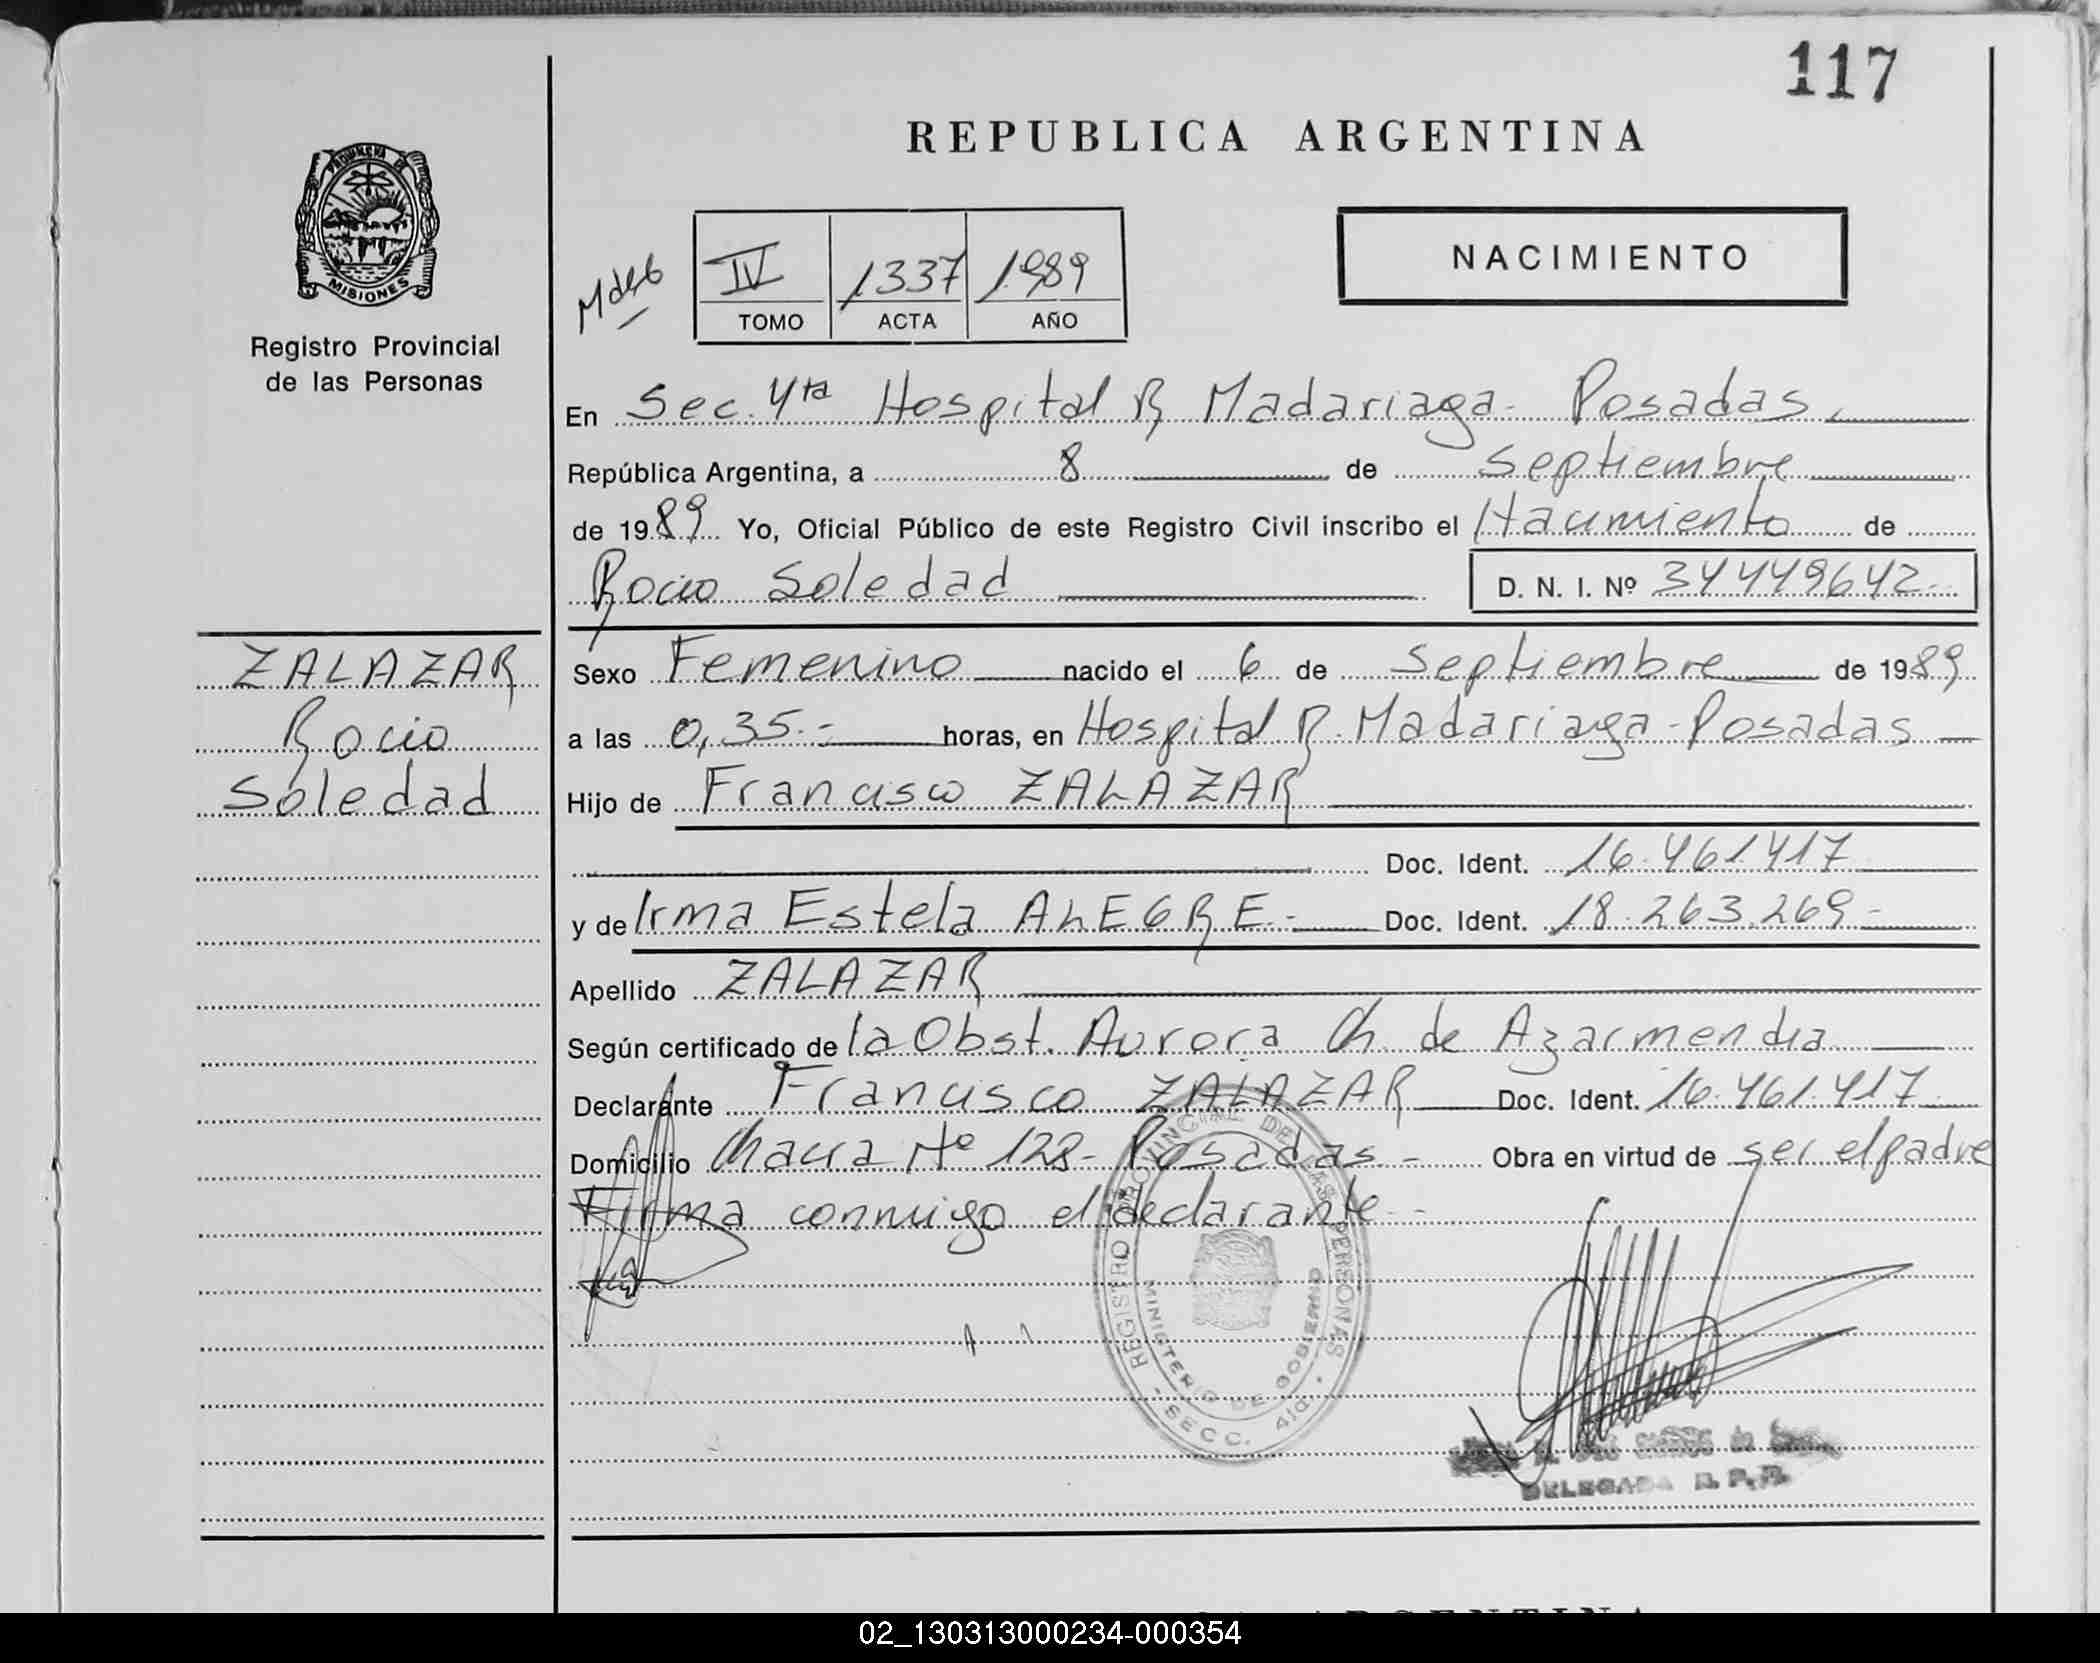 117
REPUBLICA ARGENTINA
PROVINCIA DE
MISIONES
Registro Provincial
de las Personas
NACIMIENTO
IV 1337 1989
TOMO ACTA AÑO
En Sec. 4ta Hospital R Madariaga - Posadas,
República Argentina, a 8 de Septiembre
de 1989 Yo, Oficial Público de este Registro Civil inscribo el Nacimiento de
Rocio Soledad D. N. I. Nº 34449642.-
ZALAZAR
Rocio
Soledad
Sexo Femenino nacido el 6 de Septiembre de 1989
a las 0,35.- horas, en Hospital R. Madariaga - Posadas
Hijo de Francisco ZALAZAR
Doc. Ident. 16.461.417
y de Irma Estela ALEGRE.- Doc. Ident. 18.263.269-
Apellido ZALAZAR
Según certificado de la Obst. Aurora Ch. de Azarmendia
Declarante Francisco ZALAZAR Doc. Ident. 16.461.417
Domicilio Chacra Nº 123- Posadas.- Obra en virtud de ser el padre
Firma conmigo el declarante.-
REGISTRO PROVINCIAL DE LAS PERSONAS
MINISTERIO DE GOBIERNO
- SECC. 4ta. -
DELEGADA R. P. P.
ARGENTINA
02_130313000234-000354